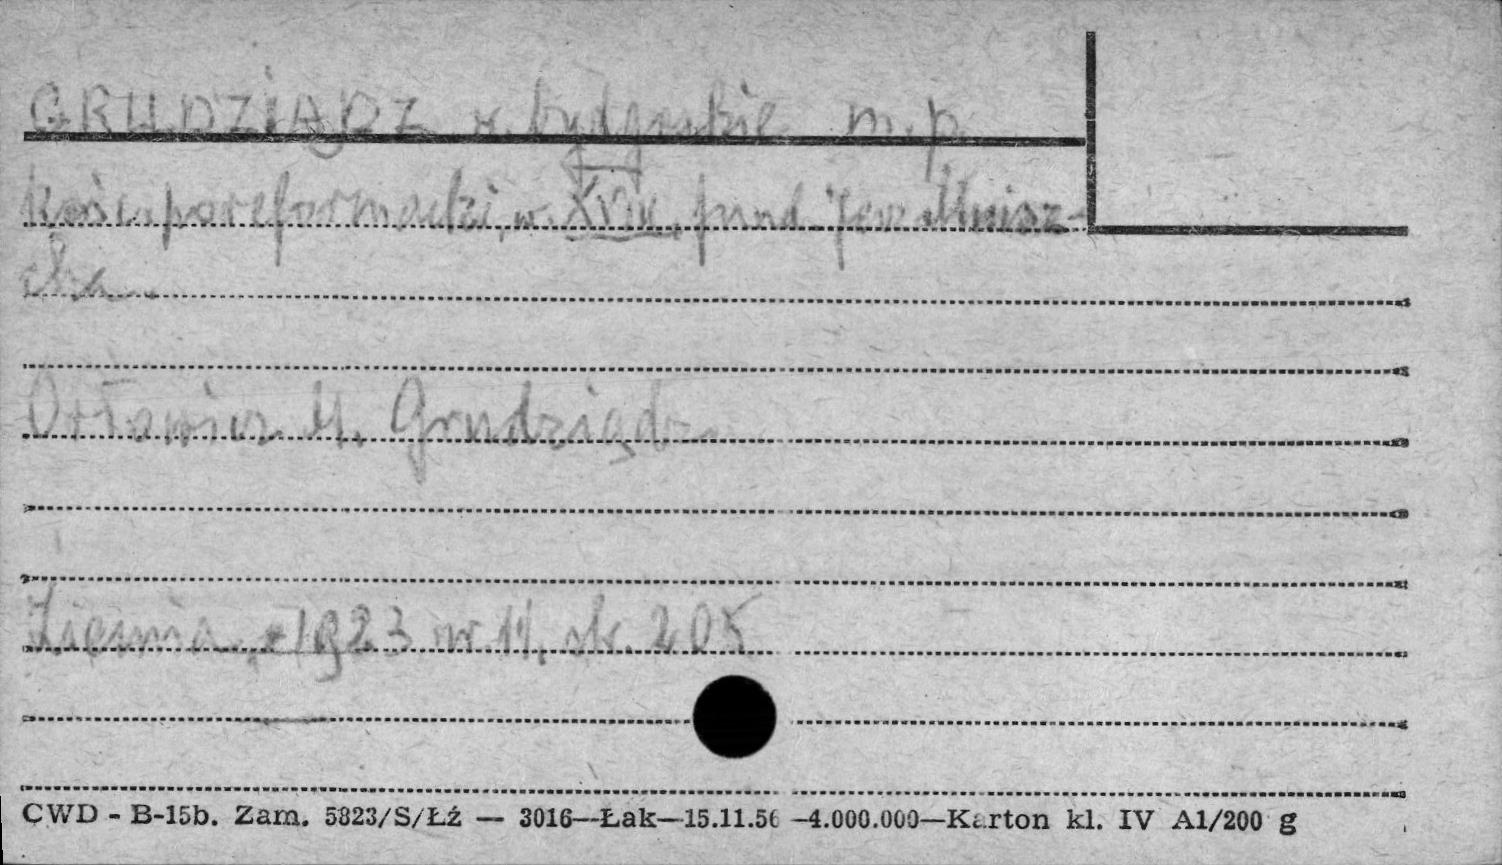 GRUDZIĄDZ w. bydgoskie m. p.
Kość. poreformacki, w. XVIII, fund. Jerz. Mnisz-
cha.
Orłowicz M. Grudziądz
Ziemia, 1923 nr. 11, str. 205
CWD - B-15b. Zam. 5823/S/Łź — 3016—Łak—15.11.56 —4.000.000—Karton kl. IV A1/200 g